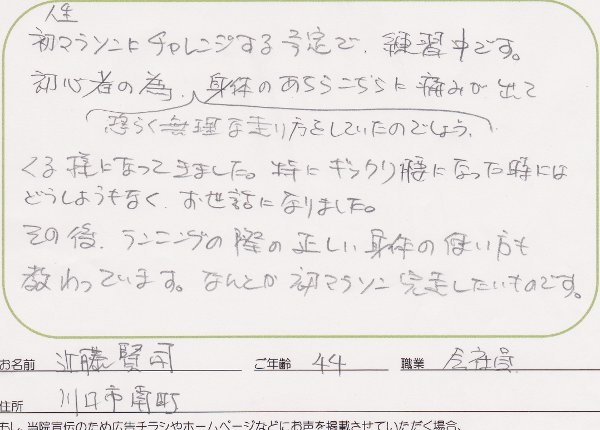 人生
初マラソンにチャレンジする予定で、練習中です。
初心者の為、身体のあちらこちらに痛みが出て
恐らく無理な走り方をしていたのでしょう。
くる様になってきました。特にギックリ腰になった時には
どうしようもなく、お世話になりました。
その後、ランニングの際の正しい身体の使い方も
教わっています。なんとか初マラソン完走したいものです。
お名前 近藤賢司 ご年齢 44 職業 会社員
住所 川口市南町
もし、当院宣伝のため広告チラシやホームページなどにお声を掲載させていただく場合、